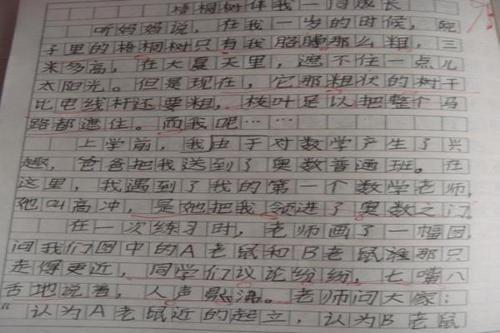 梧桐树伴我一同成长
听妈妈说，在我一岁的时候，院
子里的梧桐树只有我胳膊那么粗，三
米多高，在大夏天里，遮不住一点儿
太阳光。但是现在，它那粗状的树干
比电线杆还要粗，枝叶足以把整个马
路都遮住。而我呢……
上学前，我由于对数学产生了兴
趣，爸爸把我送到了奥数普通班。在
这里，我遇到了我的第一个数学老师，
她叫高冲，是她把我领进了奥数之门
在一次练习时，老师画了一幅图，
问我们图中的A老鼠和B老鼠谁那只
走得更近，同学们议论纷纷，七嘴八
舌地说着，人声鼎沸。老师问大家：
“认为A老鼠近的起立，认为B老鼠